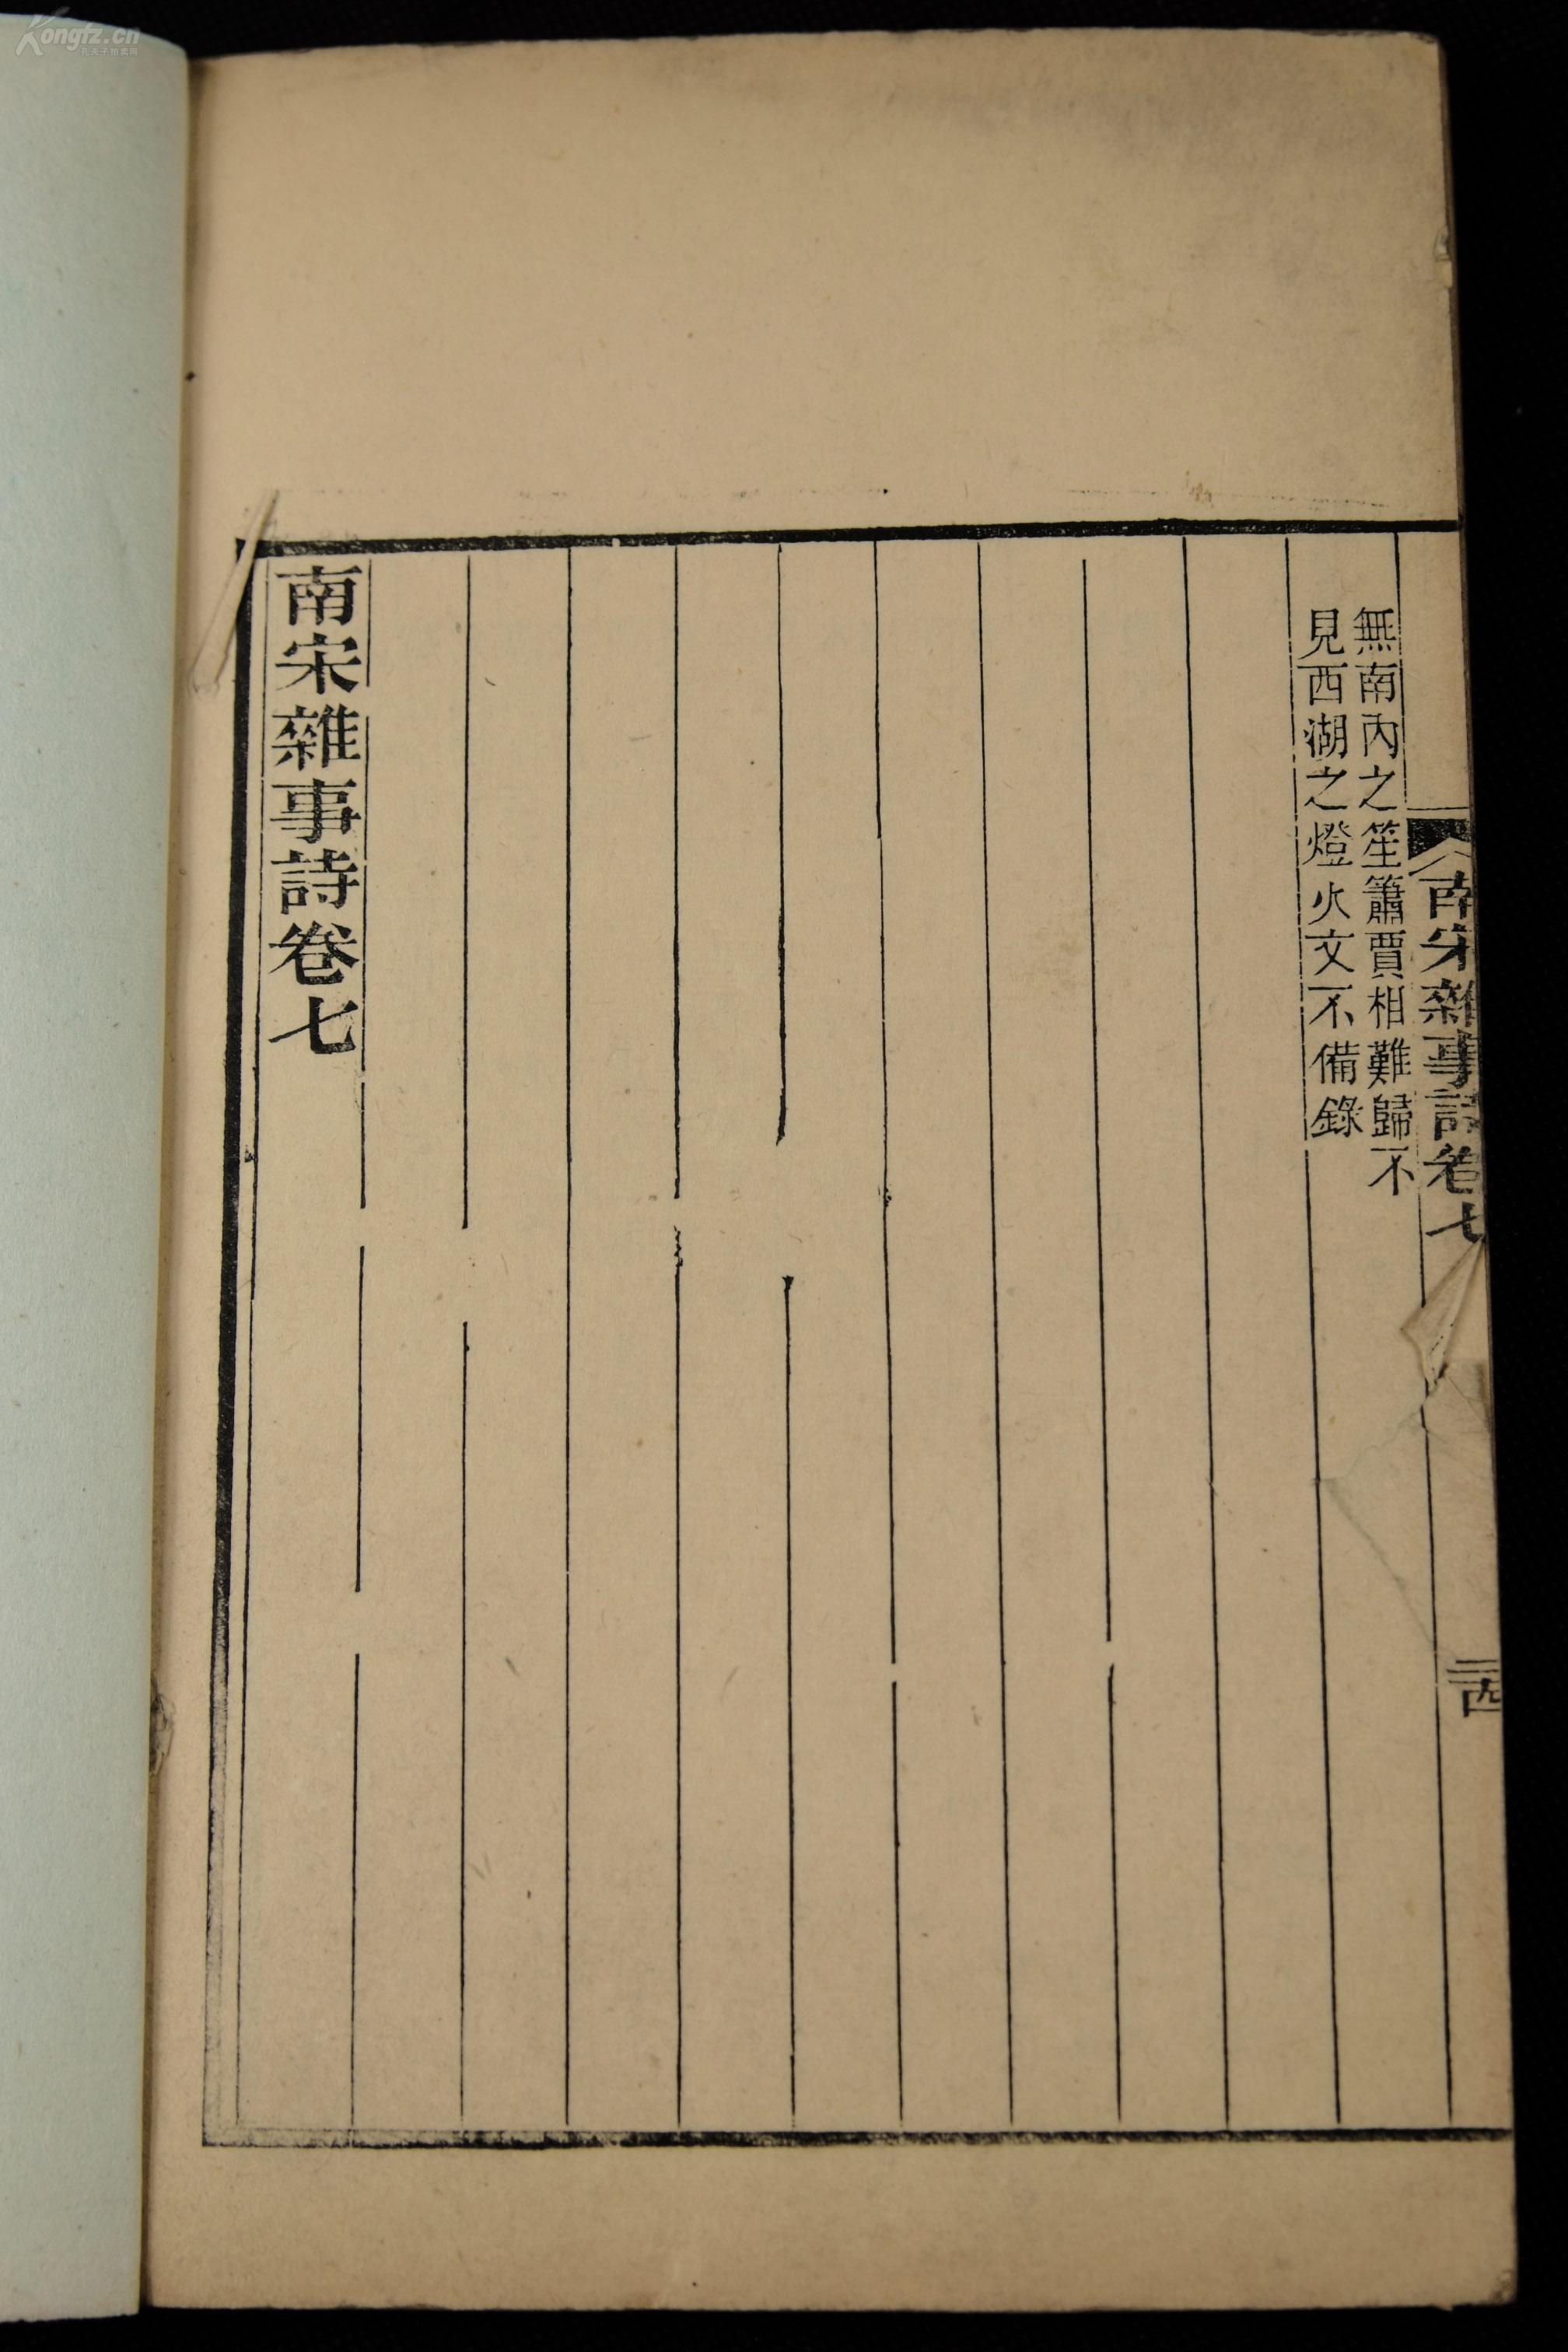 南宋雜事詩卷七
二四
無南內之笙簫賈相難歸不
見西湖之燈火文不備錄
南宋雜事詩卷七
Kongfz.cn